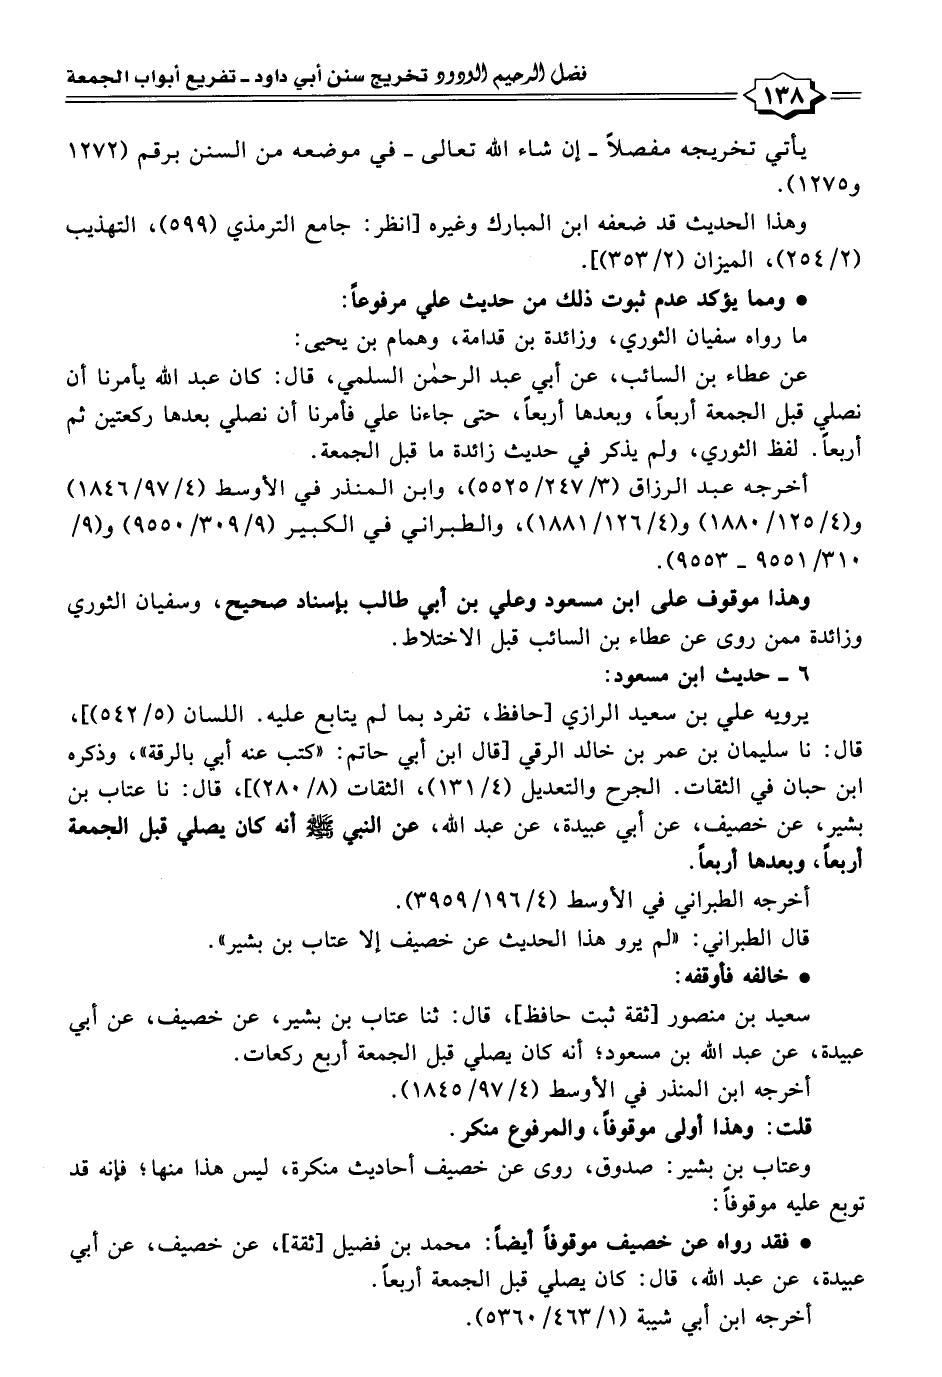 فضل الرحيم الودود تخريج سنن أبي داود ـ تفريع أبواب الجمعة
١٣٨
يأتي تخريجه مفصلاً ـ إن شاء الله تعالى ـ في موضعه من السنن برقم (١٢٧٢
و١٢٧٥).
وهذا الحديث قد ضعفه ابن المبارك وغيره [انظر: جامع الترمذي (٥٩٩)، التهذيب
(٢/ ٢٥٤)، الميزان (٢/ ٣٥٣)].
• ومما يؤكد عدم ثبوت ذلك من حديث علي مرفوعاً:
ما رواه سفيان الثوري، وزائدة بن قدامة، وهمام بن يحيى:
عن عطاء بن السائب، عن أبي عبد الرحمٰن السلمي، قال: كان عبد الله يأمرنا أن
نصلي قبل الجمعة أربعاً، وبعدها أربعاً، حتى جاءنا علي فأمرنا أن نصلي بعدها ركعتين ثم
أربعاً. لفظ الثوري، ولم يذكر في حديث زائدة ما قبل الجمعة.
أخرجه عبد الرزاق (٣/ ٢٤٧/ ٥٥٢٥)، وابن المنذر في الأوسط (٤/ ٩٧/ ١٨٤٦)
و(٤/ ١٢٥/ ١٨٨٠) و(٤/ ١٢٦/ ١٨٨١)، والطبراني في الكبير (٩/ ٣٠٩/ ٩٥٥٠) و(٩/
٣١٠/ ٩٥٥١ ـ ٩٥٥٣).
وهذا موقوف على ابن مسعود وعلي بن أبي طالب بإسناد صحيح، وسفيان الثوري
وزائدة ممن روى عن عطاء بن السائب قبل الاختلاط.
٦ ـ حديث ابن مسعود:
يرويه علي بن سعيد الرازي [حافظ، تفرد بما لم يتابع عليه. اللسان (٥/ ٥٤٢)]،
قال: نا سليمان بن عمر بن خالد الرقي [قال ابن أبي حاتم: «كتب عنه أبي بالرقة»، وذكره
ابن حبان في الثقات. الجرح والتعديل (٤/ ١٣١)، الثقات (٨/ ٢٨٠)]، قال: نا عتاب بن
بشير، عن خصيف، عن أبي عبيدة، عن عبد الله، عن النبي ﷺ أنه كان يصلي قبل الجمعة
أربعاً، وبعدها أربعاً.
أخرجه الطبراني في الأوسط (٤/ ١٩٦/ ٣٩٥٩).
قال الطبراني: «لم يرو هذا الحديث عن خصيف إلا عتاب بن بشير».
• خالفه فأوقفه:
سعيد بن منصور [ثقة ثبت حافظ]، قال: ثنا عتاب بن بشير، عن خصيف، عن أبي
عبيدة، عن عبد الله بن مسعود؛ أنه كان يصلي قبل الجمعة أربع ركعات.
أخرجه ابن المنذر في الأوسط (٤/ ٩٧/ ١٨٤٥).
قلت: وهذا أولى موقوفاً، والمرفوع منكر.
وعتاب بن بشير: صدوق، روى عن خصيف أحاديث منكرة، ليس هذا منها؛ فإنه قد
توبع عليه موقوفاً:
• فقد رواه عن خصيف موقوفاً أيضاً: محمد بن فضيل [ثقة]، عن خصيف، عن أبي
عبيدة، عن عبد الله، قال: كان يصلي قبل الجمعة أربعاً.
أخرجه ابن أبي شيبة (١/ ٤٦٣/ ٥٣٦٠).